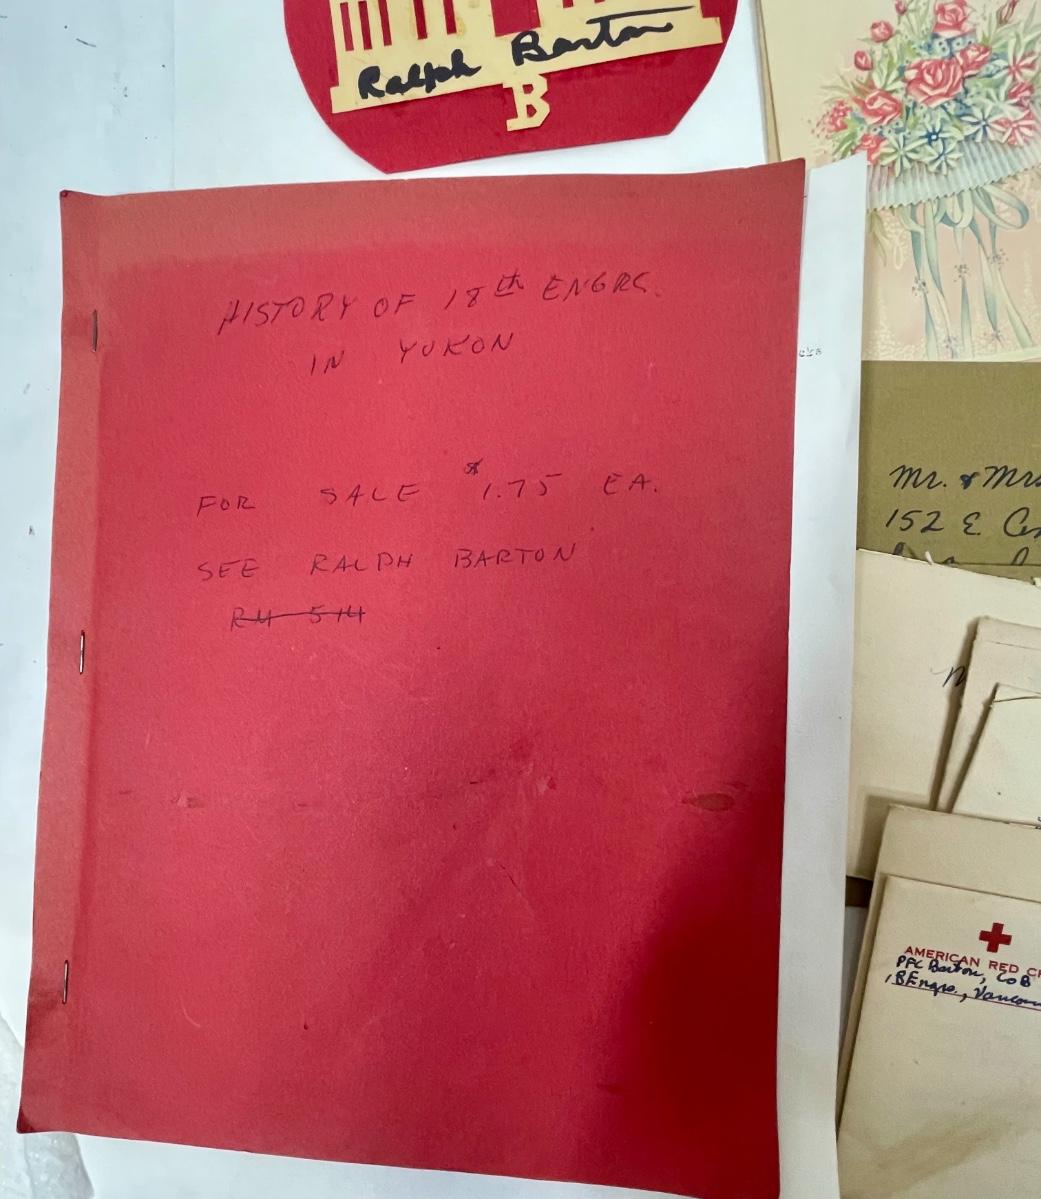 Ralph Barton
B
HISTORY OF 18th ENGRS.
IN YUKON
FOR SALE $1.75 EA.
SEE RALPH BARTON
RM 514
Mr. & Mrs
152 E. Cen
AMERICAN RED C
PFC Barton, Co B
18 Engrs., Vancou